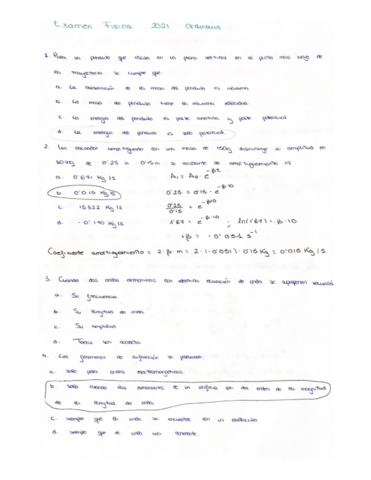 Examen Física 2021 Ordinario
1. Para un péndulo que oscila en un plano vertical en el punto más bajo de
su trayectoria se cumple que:
a. La aceleración de la masa del péndulo es máxima
b. La masa del péndulo tiene la máxima velocidad.
c. La energía del péndulo es parte cinética y parte potencial
d. La energía del péndulo es solo potencial.
2. Un oscilador amortiguado con una masa de 150g disminuye su amplitud en
de 0'25 m 0'15m su constante de amortiguamiento es
a. 0'671 Kg/s
b. 0'015 Kg/s
c. Kg/s
d. -0'170 Kg/s
0'25 = 0'15 · e^-β·10
0'25/0'15 = e^-β·10
1'67 = e^-β·10 ; ln(1'67) = -β·10
+β = -0'051 s⁻¹
Coeficiente amortiguamiento = 2·β·m = 2·(-0'051)·0'15 Kg = 0'015 Kg/s
3. Cuando dos ondas armónicas con idéntica ecuación de onda se superponen
a. Su frecuencia
b. Su longitud de onda
c. Su amplitud
d. Todas son correctas
4. Los fenómenos de difracción se producen:
a. solo para ondas electromagnéticas.
b. solo cuando las dimensiones de un orificio son del orden de la magnitud
de la longitud de onda
c. siempre que la onda se encuentre con un obstáculo
d. siempre que la onda sea coherente.